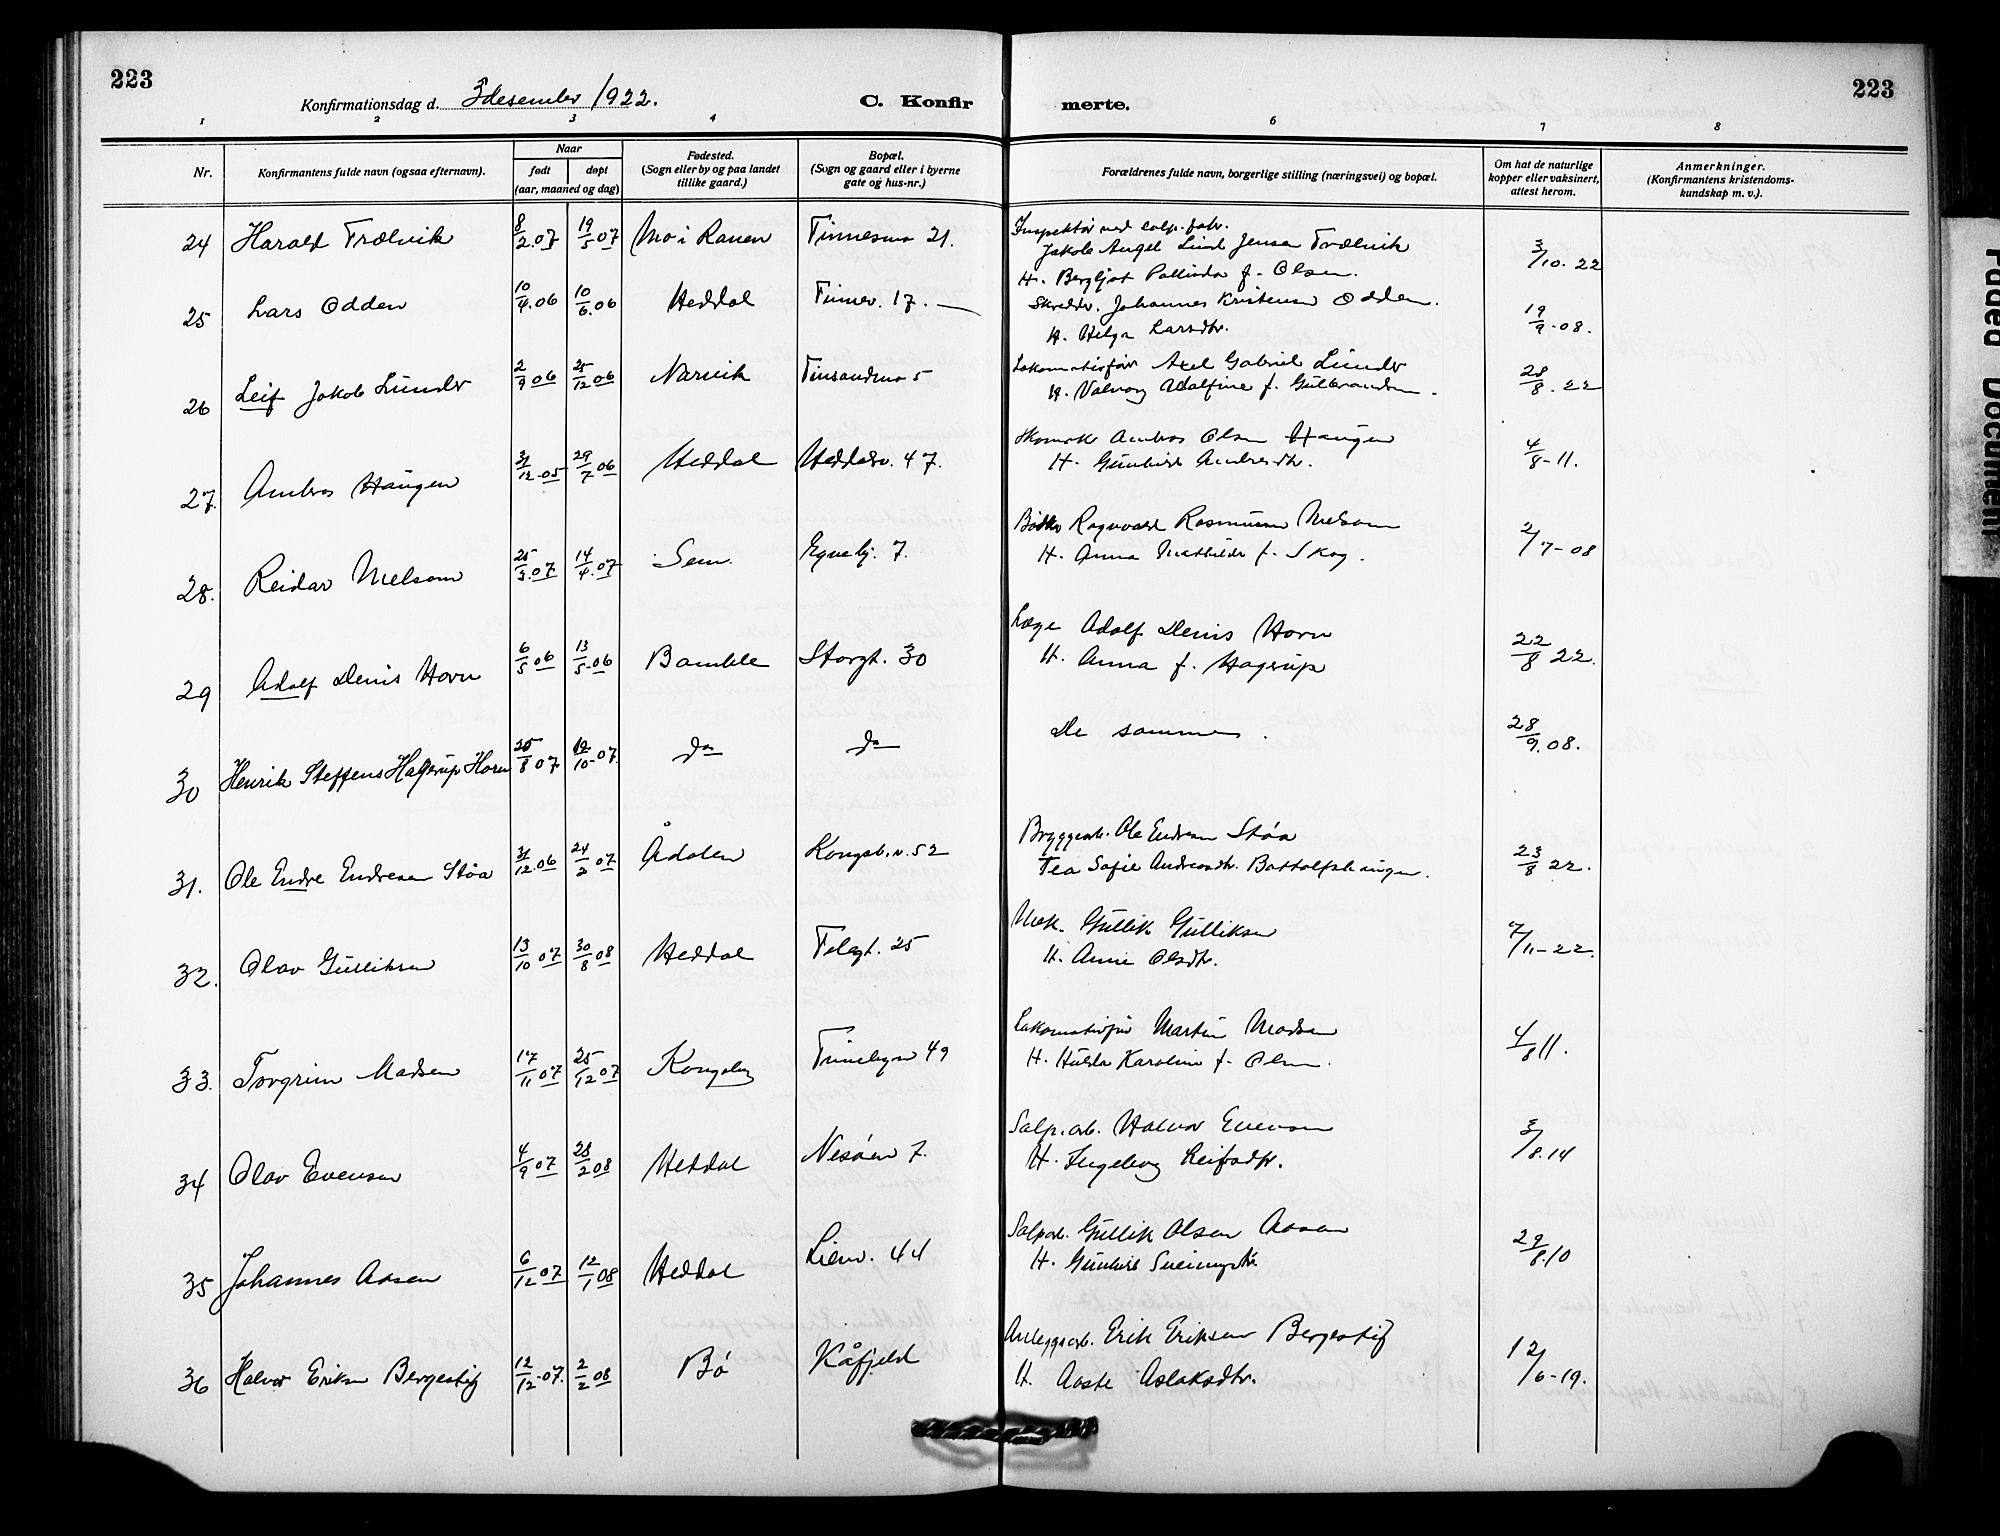 223
Konfirmationsdag d. 3 desember 1922.
C. Konfirmerte.
223
1 2 3 4 6 7 8
Nr.
Konfirmantens fulde navn (ogsaa efternavn).
Naar
født døpt
(aar, maaned og dag)
Fødested.
(Sogn eller by og paa landet
tillike gaard.)
Bopæl.
(Sogn og gaard eller i byerne
gate og hus-nr.)
Forældrenes fulde navn, borgerlige stilling (næringsvei) og bopæl.
Om hat de naturlige
kopper eller vaksinert,
attest herom.
Anmerkninger.
(Konfirmantens kristendoms-
kundskap m. v.).
24 Harald Trælvik 8/2.07 19/5 07 Mo i Ranen Tinnesmo 21. Inspektør ved salp. fabr.
Jakob Angel Lind Jensen Trælvik 3/10. 22
H. Bergljot f. Olsen.
25 Lars Odden 10/4.06 10/6.06 Heddal Tinnev. 17. Skredder. Johannes Kristensen Odden. 19/9-08.
H. Helga Larsdtr.
26 Leif Jakob Lunder 2/9 06 25/12 06 Narvik Tinsandmo 5 Lokomotivfør Axel Gabriel Lunder 28/8. 22
H. Valborg Adolfine f. Gulbrandsen.
27. Ambros Haugen 31/12-05 29/7 06 Heddal Heddalsv. 47. Ambros Olsen Haugen 4/8-11.
H. Gunhild Andresdtr.
28. Reidar Melsom 25/3.07 14/4.07 Sem. 7. Bødker Ragnvald Rasmussen Melsom 2/7-08
H. Anna Mathilde f. Skog.
29 Adolf Denis Horn 6/5 06 13/5-06 Bamble Storgt. 30 Læge Adolf Denis Horn 22/8 22.
H. Anna f. Hagerup
30 Henrik Steffens Hagerup Horn 25/8 07 12/10-07. do do De samme. 28/9.08.
31. Ole Endre Endresen Støa 31/12.06 24/2 07 Ådalen Kongsb. v. 52 Bryggearb. Ole Endresen Støa 23/8 22.
Tea Sofie Andreasdtr.
32. Olav Gulliksen 13/10 07 30/8 08 Heddal Telegt. 25 Mek. Gullik Gulliksen 7/11-22.
H. Anne Olsdtr.
33. Torgrim Madsen 17/11 07 25/12 07 Kongsberg Tinnebyen 49 Lokomotivfør Martin Madsen 4/8 11.
H. Hulda Karoline f. Olsen.
34 Olav Evensen 4/9 07 28/2 08 Heddal Nesøen 7. Salp. arb. Halvor Evensen 3/8.14
H. Ingeborg Leifsdtr.
35 Johannes Aasen 6/12 07 12/1 08 Heddal Lienv. 44 Salparb. Gullik Olsen Aasen 29/8.10
H. Gunhild
36 Halvor Eriksen Bergestig 12/12-07. 2/2 08 Bø Kåfjeld Anleggsarb. Erik Eriksen Bergestig 12/6-19.
H. Aaste Aslaksdtr.